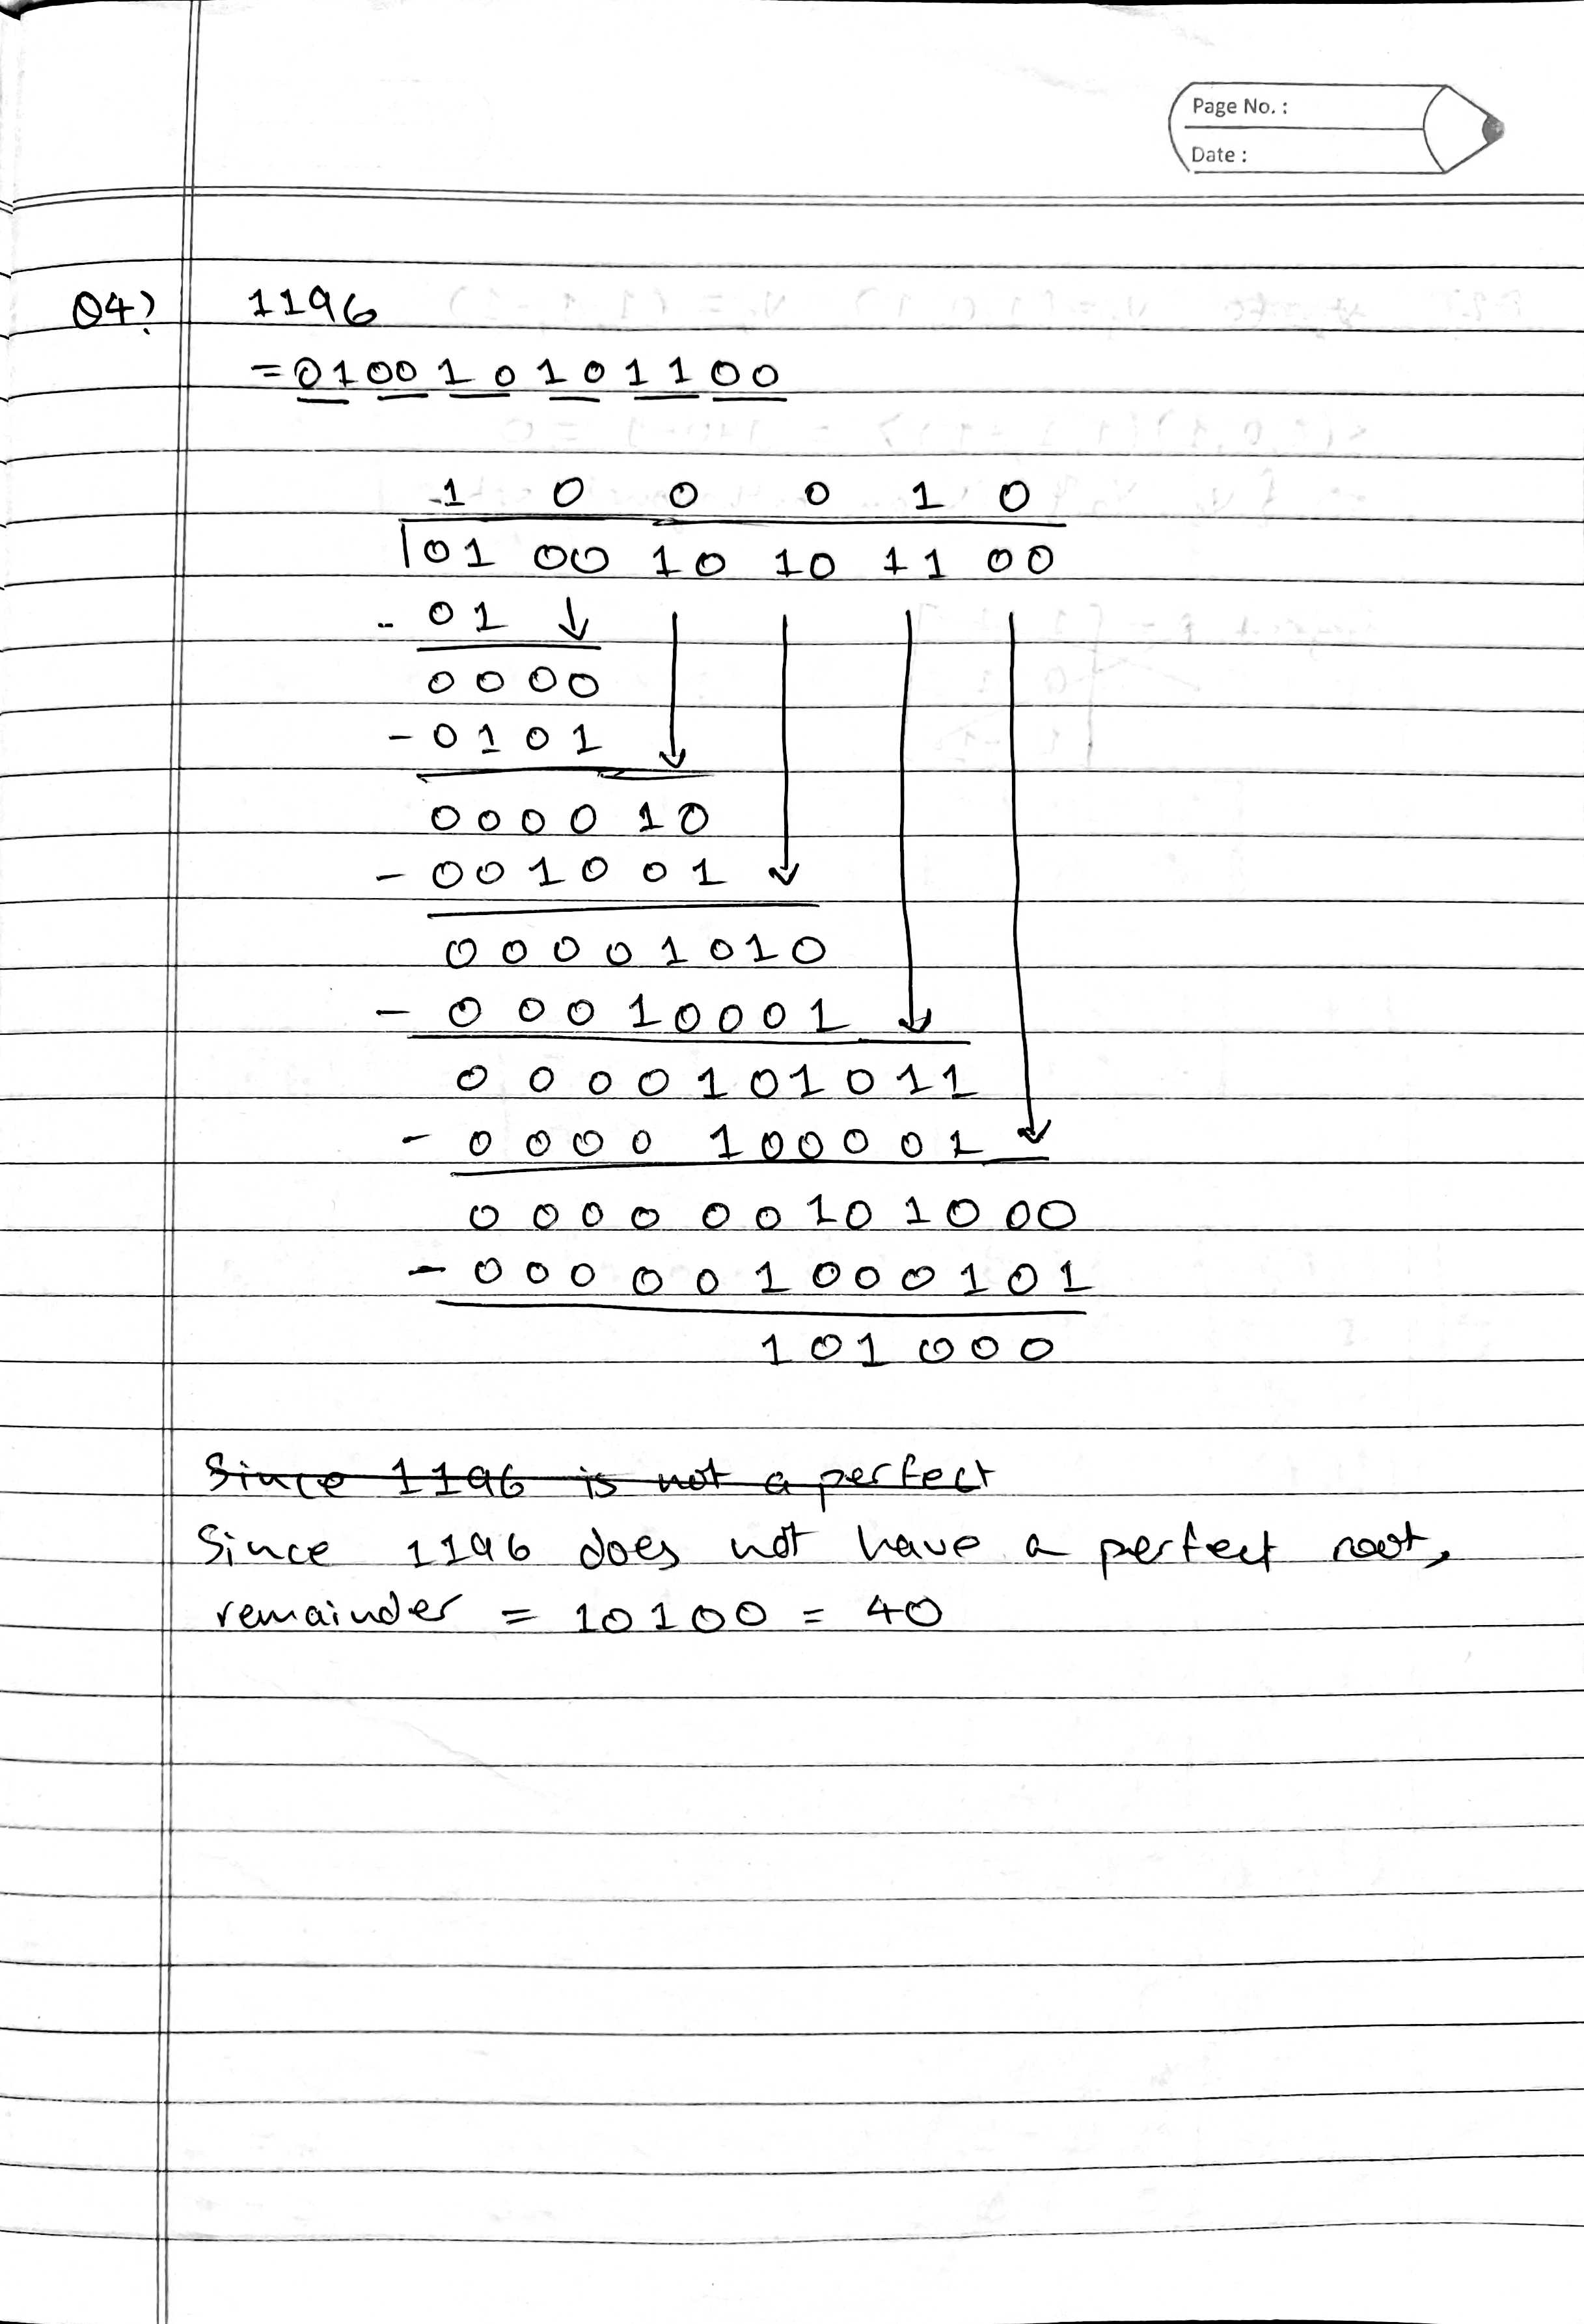 Page No. :
Date :
Q4) 1196
= 010010101100
1 0 0 0 1 0
01 00 10 10 11 00
- 01
0000
- 0101
000010
- 001001
00001010
- 00010001
0000101011
- 0000100001
000000101000
- 0000001000101
101000
Since 1196 is not a perfect
Since 1196 does not have a perfect root,
remainder = 10100 = 40